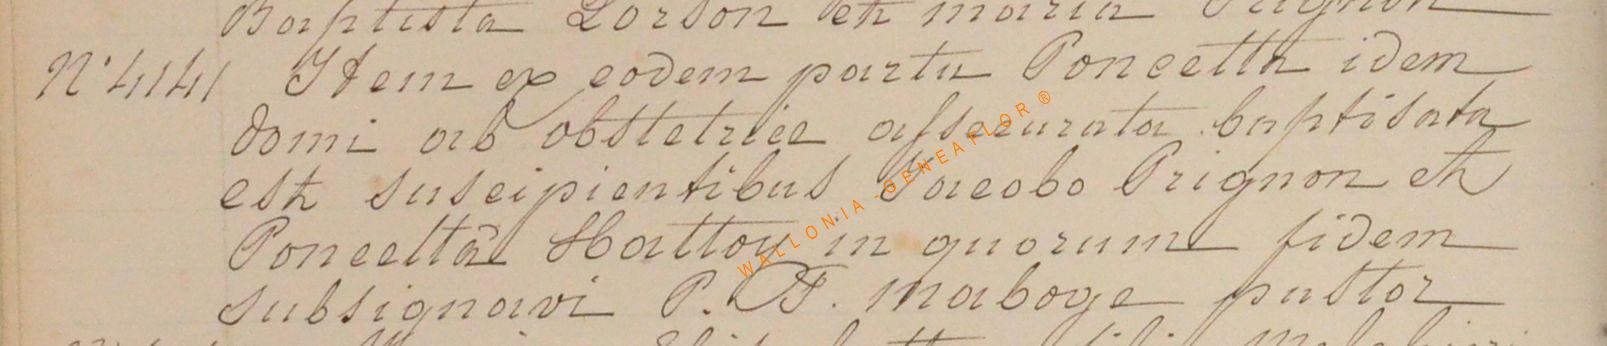 Baptista Lorson et maria Prignon
N° 4141 Item ex eodem partu Poncetta idem
domi ab obstetrice assecurata baptisata
est suscipientibus Jacobo Prignon et
Poncetta Hattoy in quorum fidem
subsignavi P. F. maboge pastor
WALLONIA - GENEAFLOR ®